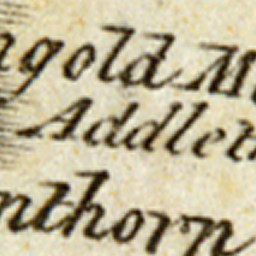 ngold M
Addlet
nthorn